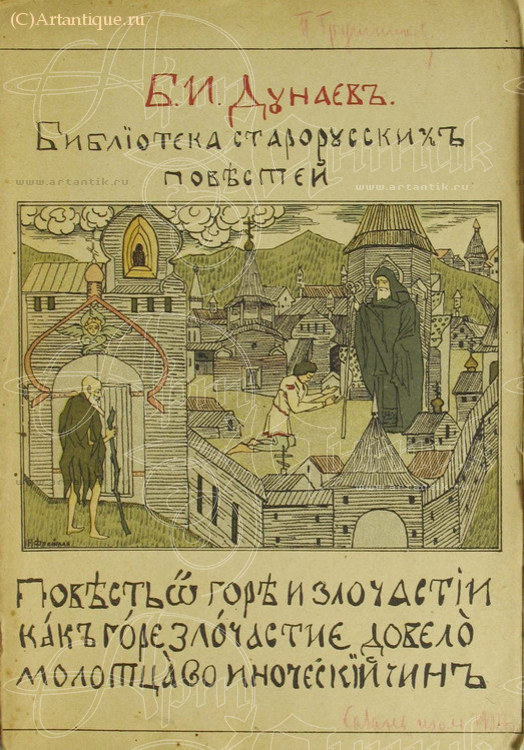 (C)Artantique.ru
Б.И. Дунаевъ.
Библіотека старорусскихъ
повѣстей
www.artantik.ru www.artantik.ru
Повѣсть ѿ горѣ и злочастіи
ка́къ го́ре злоча́стие довело̀
молотца̀ во иноче́скїй чинъ